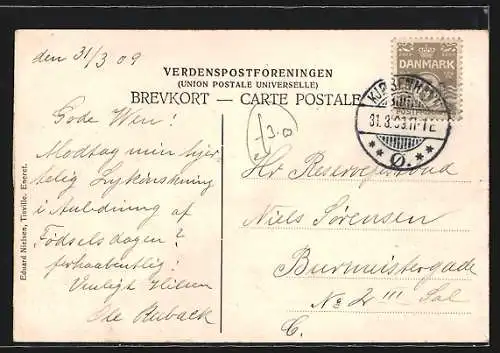 den 31/3 09
VERDENSPOSTFORENINGEN
(UNION POSTALE UNIVERSELLE)
BREVKORT — CARTE POSTALE
DANMARK
KJØBENHAVN
31.3.09.11-12
Ø.
Gode Ven!
Modtag min hjer-
telig Lykönskning
i Anledning af
Födselsdagen?
forhaabentlig!
Venligt Hilsen
Ruback
Hr Reservepostbud
Niels Sørensen
Burmeistergade
No 2 III Sal
C.
Eduard Nielsen, Tisville. Eneret.